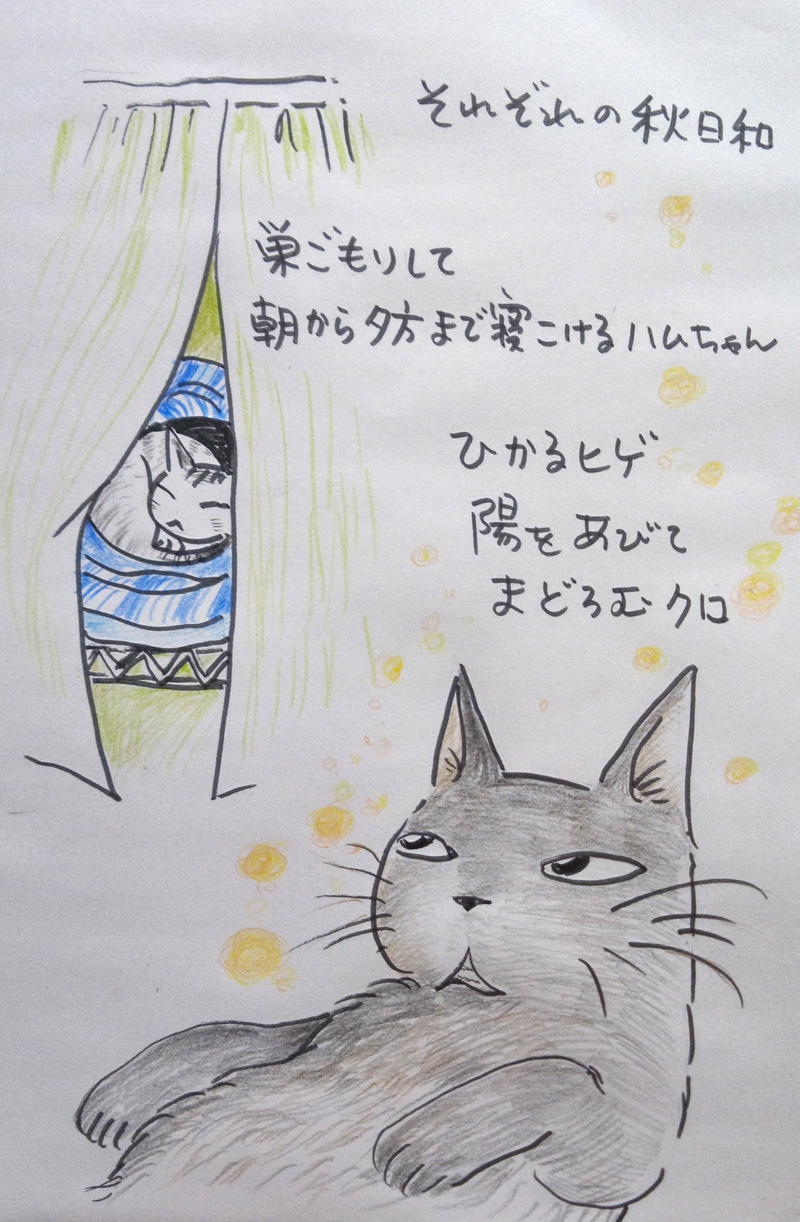 それぞれの秋日和
巣ごもりして
朝から夕方まで寝こけるハムちゃん
ひかるヒゲ
陽をあびて
まどろむクロ